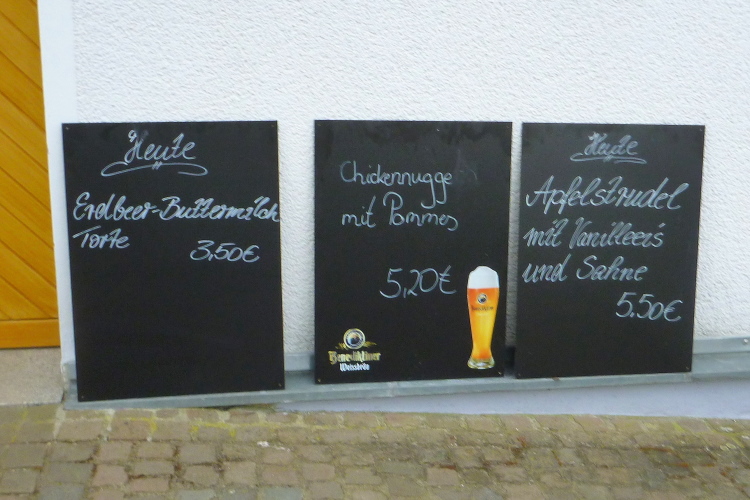 Heute
Erdbeer-Buttermilch
Torte
3,50€
Chickennugge
mit Pommes
5,20€
Benediktiner
Weissbräu
Heute
Apfelstrudel
mit Vanilleeis
und Sahne
5,50€